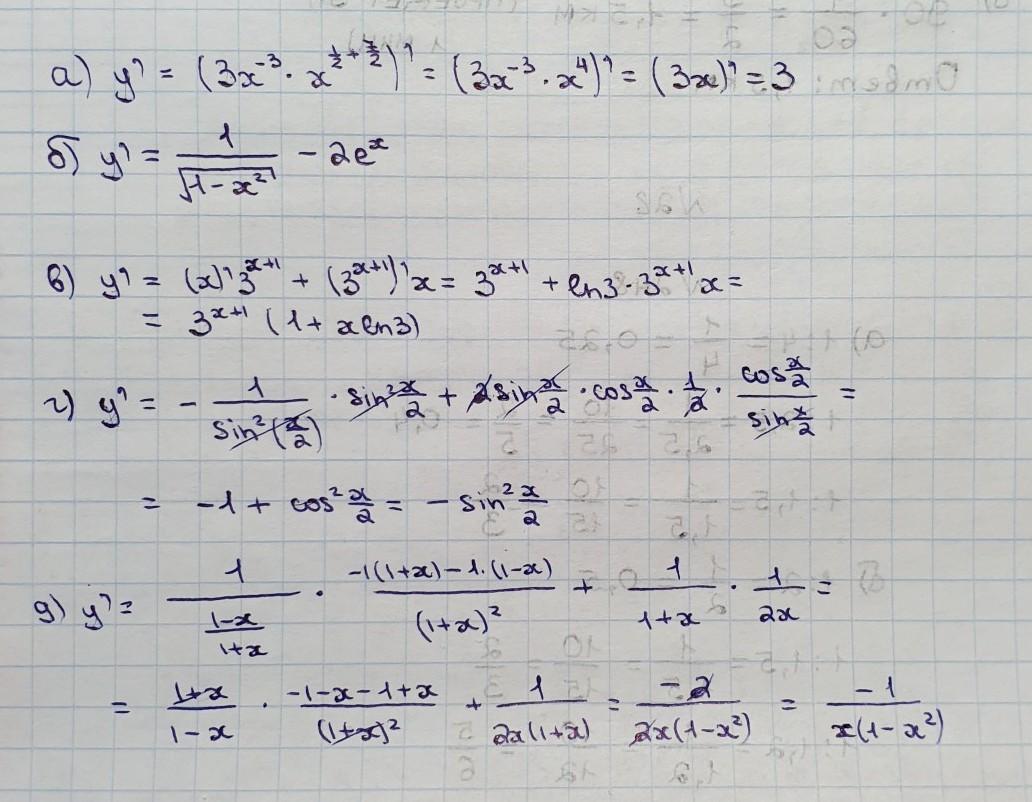 а) y' = (3x⁻³ · x^(1/2 + 7/2))' = (3x⁻³ · x⁴)' = (3x)' = 3
б) y' = 1/√(1-x²) - 2eˣ
в) y' = (x)'3^(x+1) + (3^(x+1))'x = 3^(x+1) + ln3 · 3^(x+1) x =
= 3^(x+1) (1 + xln3)
г) y' = - 1/sin²(x/2) · sin² x/2 + 2sin x/2 · cos x/2 · 1/2 · (cos x/2)/(sin x/2) =
= -1 + cos² x/2 = - sin² x/2
д) y' = 1/((1-x)/(1+x)) · (-1(1+x) - 1·(1-x))/(1+x)² + 1/(1+x) · 1/(2x) =
= (1+x)/(1-x) · (-1-x-1+x)/(1+x)² + 1/(2x(1+x)) = -2/(2x(1-x²)) = -1/(x(1-x²))